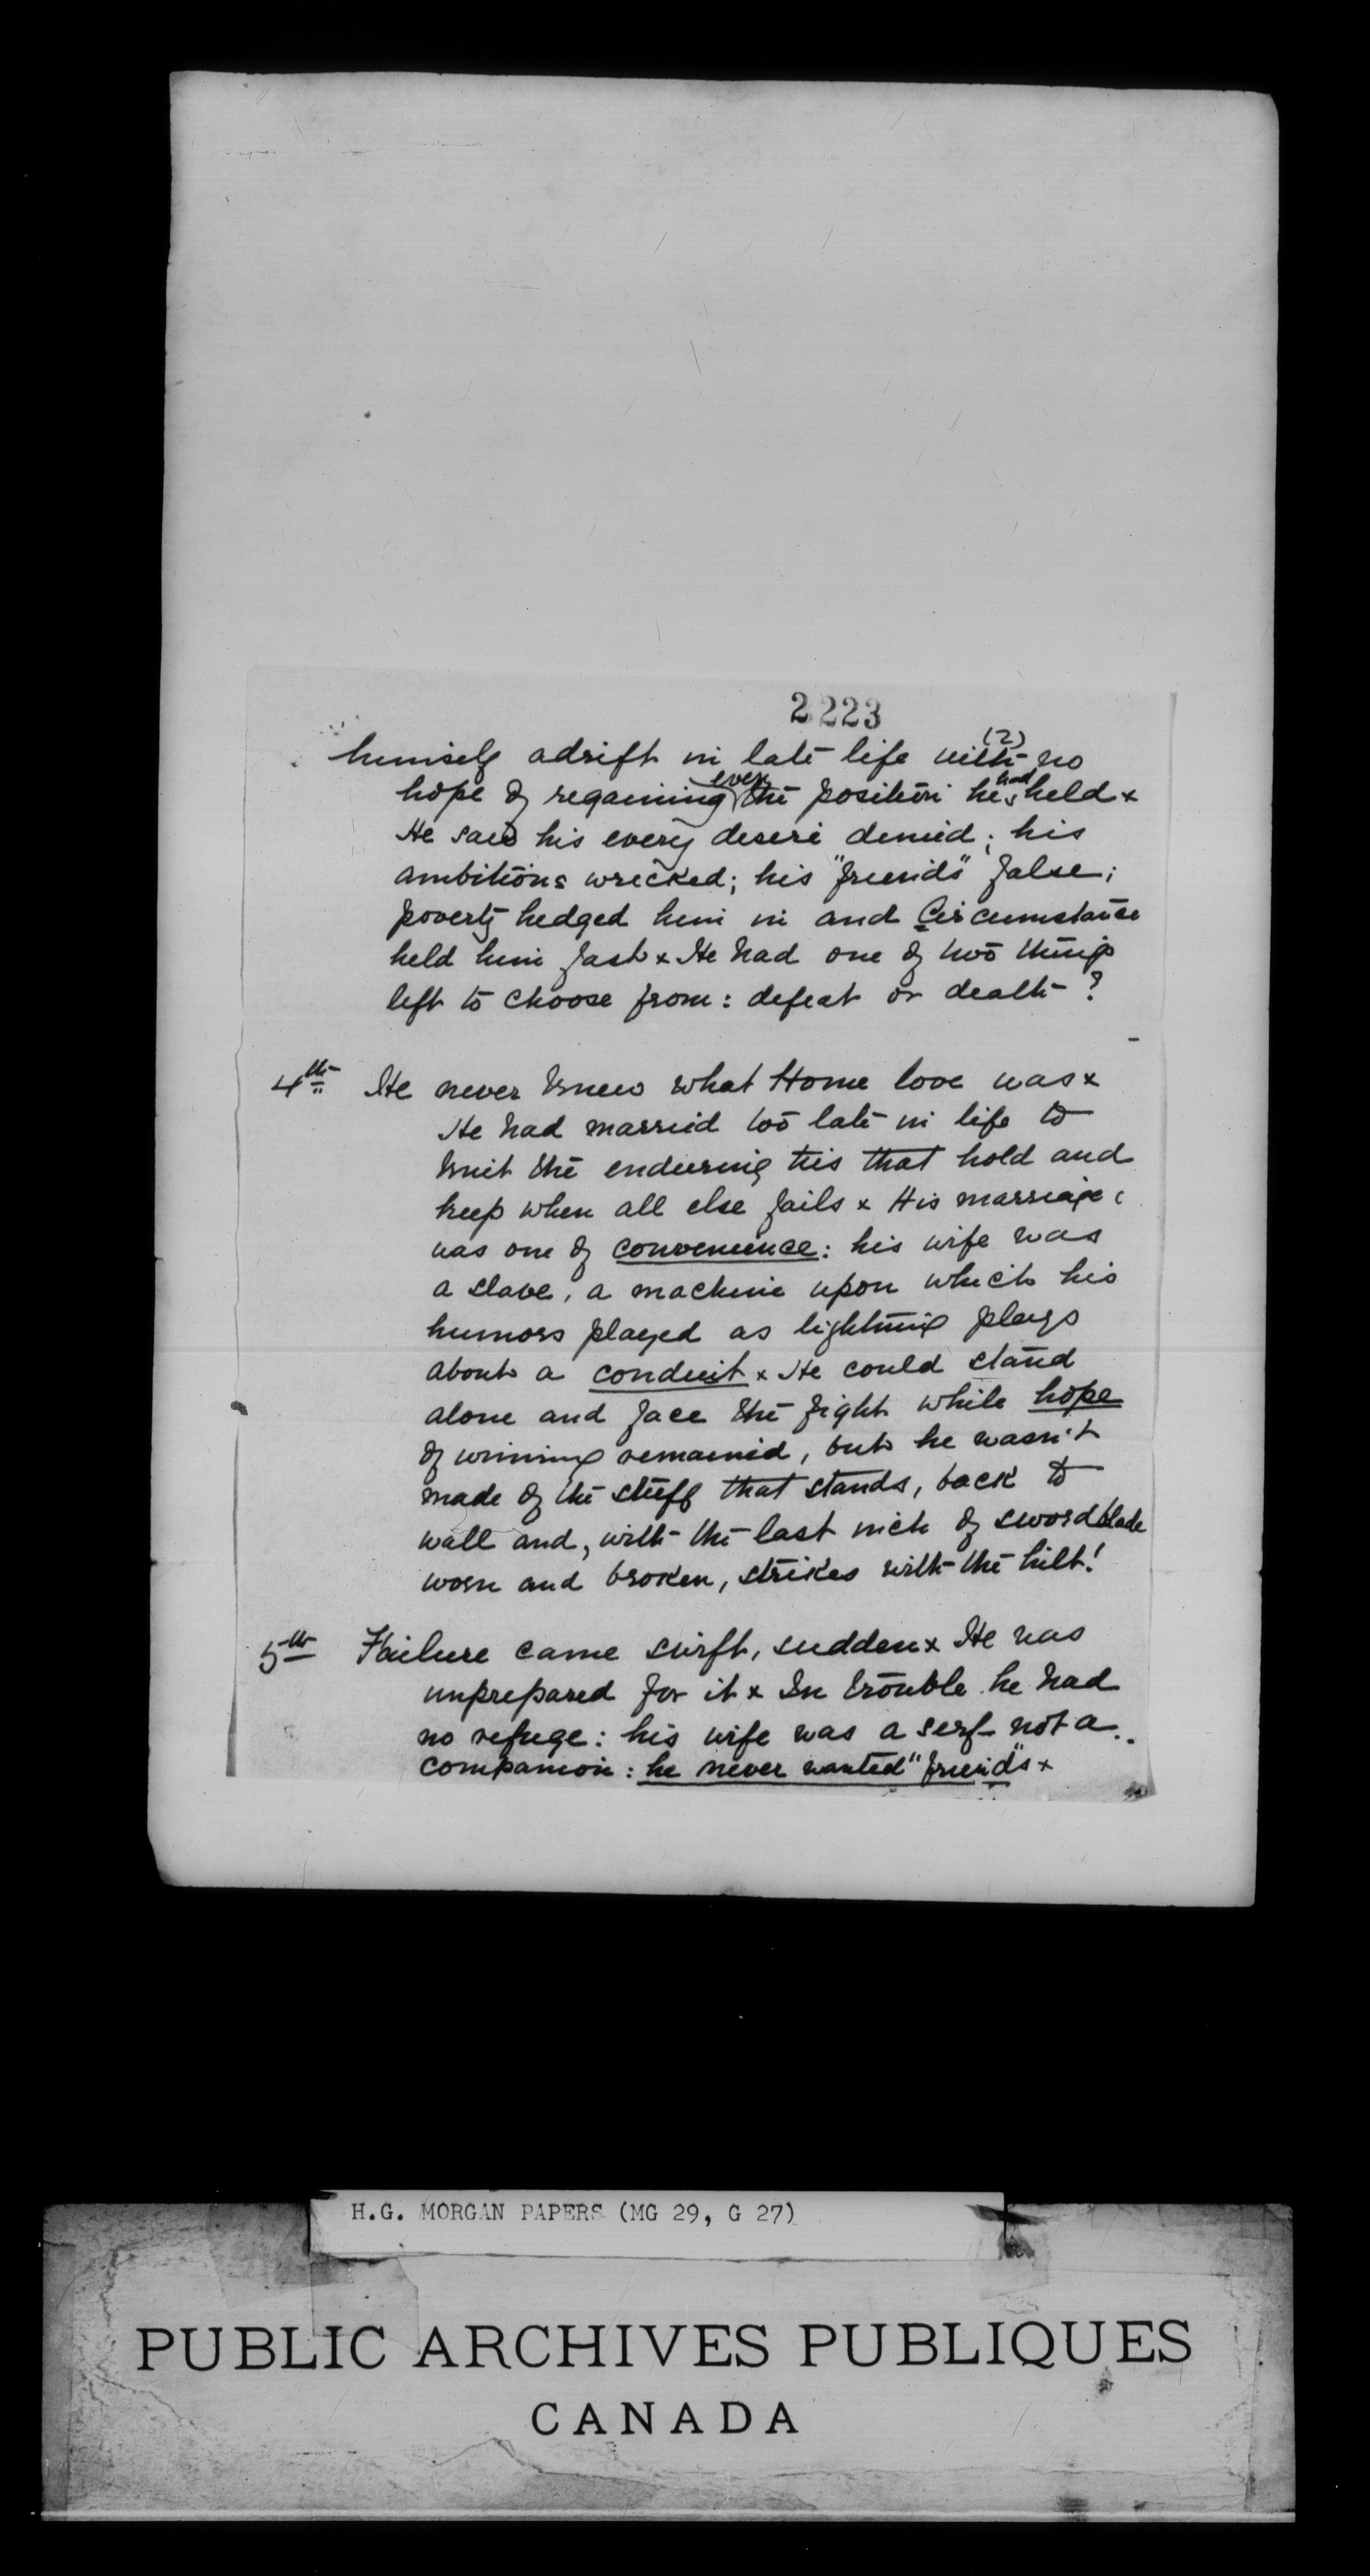 2223
(2)
himself adrift in late life with no
hope of regaining even the position he had held x
He saw his every desire denied; his
ambitions wrecked; his "friends" false;
poverty hedged him in and Circumstance
held him fast x He had one of two things
left to choose from: defeat or death?
4th He never knew what Home love was x
He had married too late in life to
knit the enduring ties that hold and
keep when all else fails x His marriage
was one of convenience: his wife was
a slave, a machine upon which his
humors played as lightning plays
about a conduit x He could stand
alone and face the fight while hope
of winning remained, but he wasn't
made of the stuff that stands, back to
wall and, with the last inch of sword blade
worn and broken, strikes with the hilt!
5th Failure came swift, sudden x He was
unprepared for it x In trouble he had
no refuge: his wife was a serf not a
companion: he never wanted "friends" x
H.G. MORGAN PAPERS (MG 29, G 27)
PUBLIC ARCHIVES PUBLIQUES
CANADA